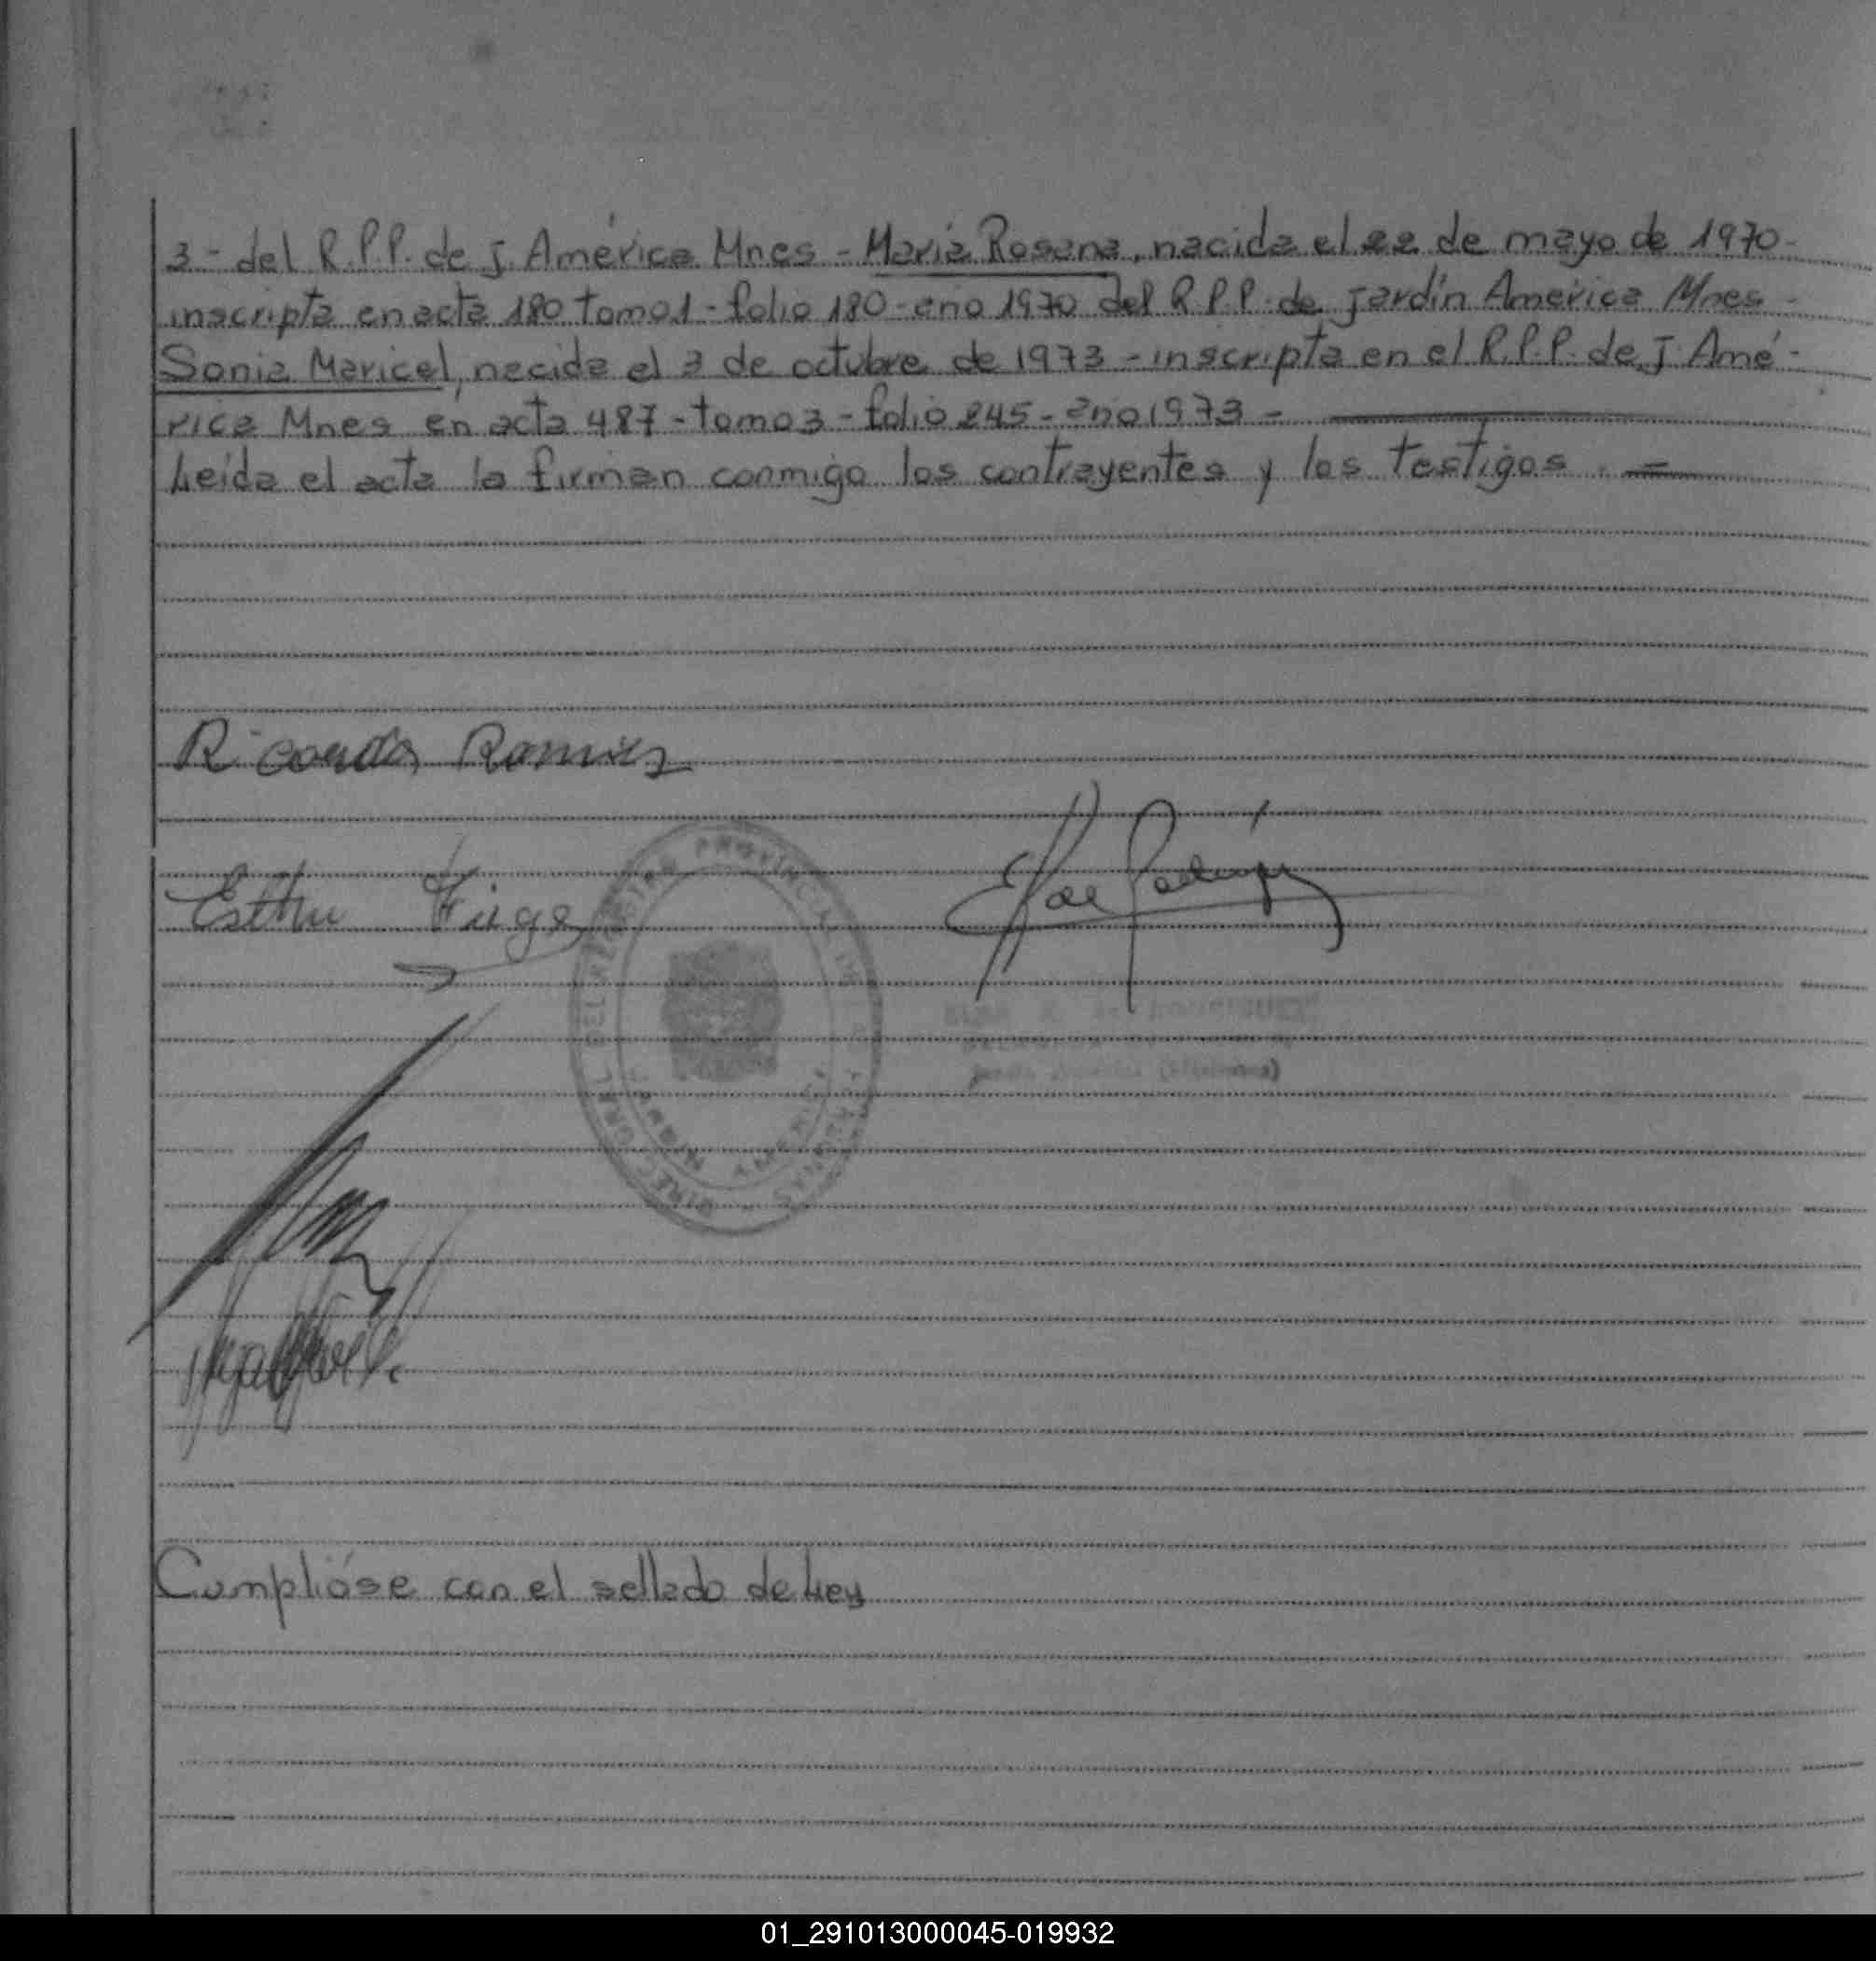 3 - del R.P.P. de J. América Mnes - María Rosana, nacida el 22 de mayo de 1970 -
inscripta en acta 180 tomo 1 - folio 180 - año 1970 del R.P.P. de Jardín América Mnes -
Sonia Maricel, nacida el 3 de octubre de 1973 - inscripta en el R.P.P. de J. Amé -
rica Mnes en acta 487 - tomo 3 - folio 245 - año 1973 -
Leída el acta la firman conmigo los contrayentes y los testigos. =
Ricardo Ramirez
Esther
DIREC. GRAL. DEL REGISTRO PROVINCIAL DE LAS PERSONAS
Cumplióse con el sellado de Ley
01_291013000045-019932